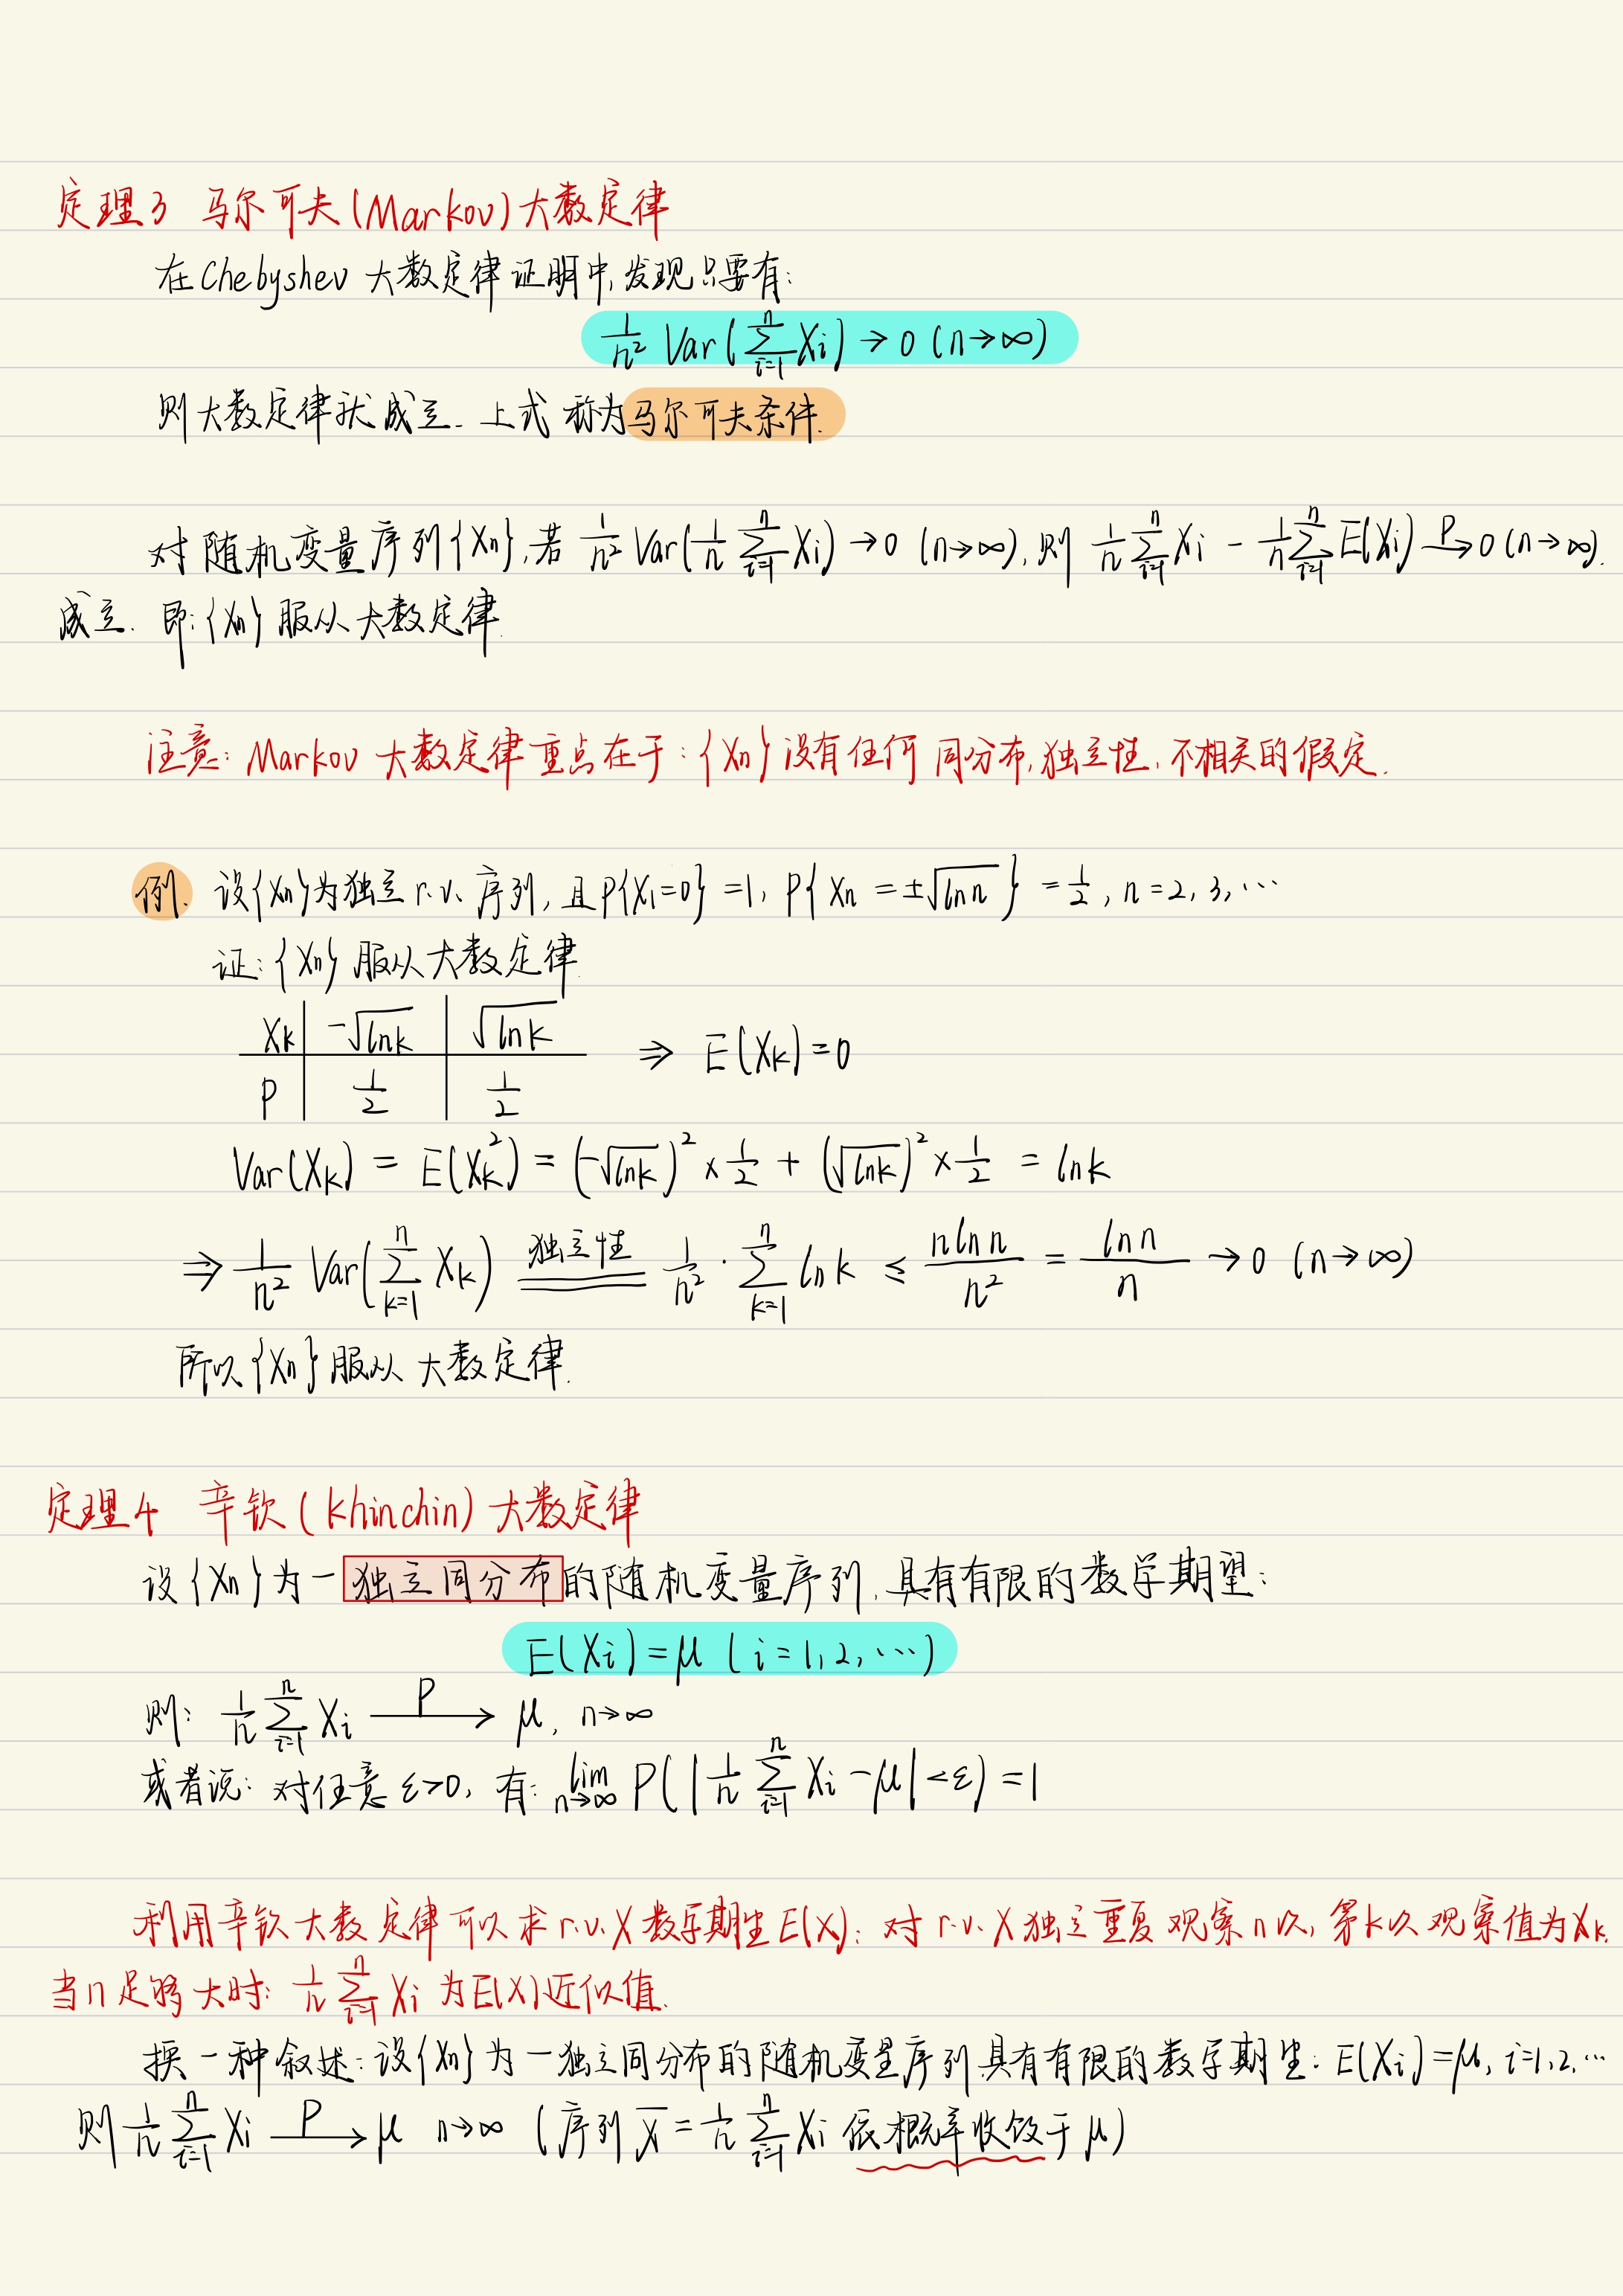 定理3 马尔可夫(Markov)大数定律
在Chebyshev 大数定律证明中,发现只要有:
1/n² Var(∑_{i=1}^{n} Xi) → 0 (n→∞)
则大数定律就成立. 上式称为马尔可夫条件.
对随机变量序列{Xn},若 1/n² Var(1/n ∑_{i=1}^{n} Xi) → 0 (n→∞),则 1/n ∑_{i=1}^{n} Xi - 1/n ∑_{i=1}^{n} E(Xi) —P→ 0 (n→∞).
成立. 即:{Xn} 服从大数定律.
注意: Markov 大数定律重点在于:{Xn} 没有任何 同分布,独立性,不相关的假定.
例. 设{Xn}为独立 r.v. 序列,且P{X1=0}=1, P{Xn=±√(ln n)}=1/2, n=2,3,…
证:{Xn} 服从大数定律.
Xk | -√(lnk) | √(lnk)
P | 1/2 | 1/2 ⇒ E(Xk)=0
Var(Xk) = E(Xk²) = (-√(lnk))² × 1/2 + (√(lnk))² × 1/2 = lnk
⇒ 1/n² Var(∑_{k=1}^{n} Xk) 独立性 = 1/n² · ∑_{k=1}^{n} lnk ≤ nlnn/n² = lnn/n → 0 (n→∞)
所以{Xn}服从大数定律.
定理4 辛钦(Khinchin)大数定律
设{Xn}为一独立同分布的随机变量序列,具有有限的数学期望:
E(Xi)=μ (i=1,2,…)
则: 1/n ∑_{i=1}^{n} Xi —P→ μ, n→∞
或者说: 对任意 ε>0, 有: lim_{n→∞} P(|1/n ∑_{i=1}^{n} Xi - μ|<ε)=1
利用辛钦大数定律可以求r.v.X数学期望E(X): 对 r.v. X独立重复观察n次, 第k次观察值为Xk.
当n足够大时: 1/n ∑_{i=1}^{n} Xi 为E(X)近似值.
换一种叙述:设{Xn} 为一独立同分布的随机变量序列,具有有限的数学期望: E(Xi)=μ, i=1,2,…
则 1/n ∑_{i=1}^{n} Xi —P→ μ n→∞ (序列 X̄=1/n ∑_{i=1}^{n} Xi 依概率收敛于μ)